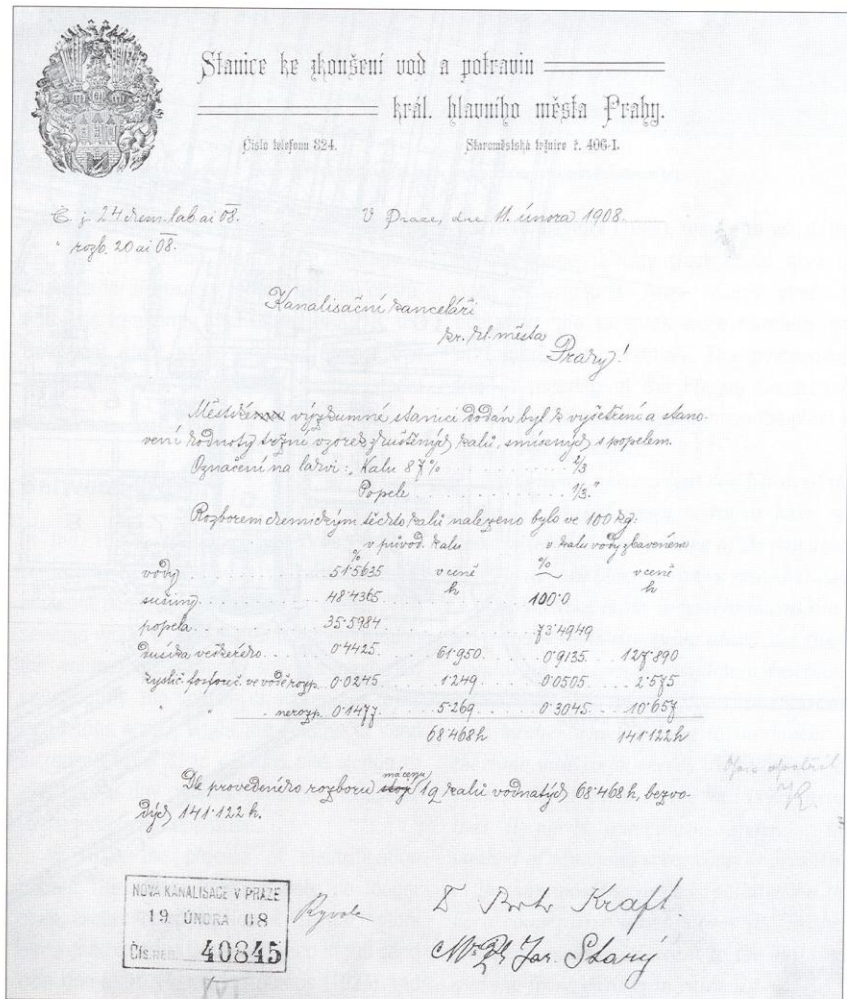 Stanice ke zkoušení vod a potravin
král. hlavního města Prahy.
Číslo telefonu 824. Staroměstská tržnice č. 406-I.
Č. j. 24 chem. lab ai 08. V Praze, dne 11. února 1908
" rozb. 20 ai 08.
Kanalisační kanceláři
kr. hl. města
Prahy!
Městské výzkumné stanici dodán byl k vyšetření a stano-
vení hodnoty tržní vzorek zhuštěných kalů, smísených s popelem.
Označení na lahvi: "Kalu 87% . . . . . . . . 2/3
Popele . . . . . . . . . 1/3."
Rozborem chemickým těchto kalů nalezeno bylo ve 100 kg:
v původ. kalu v kalu vody zbaveném
% v ceně h % v ceně h
vody . . . . . . 51·5635
sušiny . . . . . 48·4365 . . . . . . 100·0
popela . . . . . 35·5984 . . . . . . 73·4949
dusíka veškerého . . . 0·4425 . . . 61·950 . . . 0·9135 . . 127·890
kyslič. fosforeč. ve vodě rozp. 0·0245 . . . 1·249 . . . 0·0505 . . . 2·575
" " nerozp. 0·1477 . . . 5·269 . . . 0·3045 . . 10·657
68·468 h 141·122 h
Dle provedeného rozboru má cenu 1 q kalů vodnatých 68·468 h, bezvo-
dých 141·122 h.
NOVÁ KANALISACE V PRAZE
19. ÚNORA 08
ČÍS. REG. 40845
Kraft.
Jar. Starý